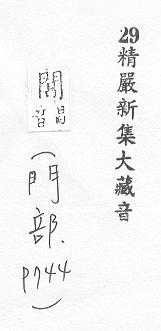 29精嚴新集大藏音
昌音
(門部. P744)